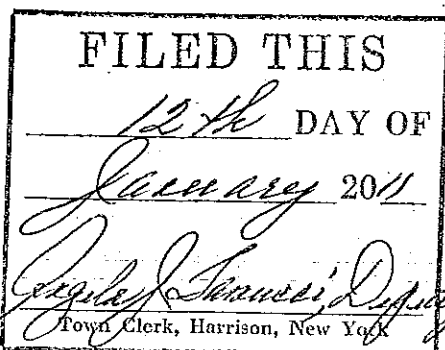 FILED THIS
12th DAY OF
January 2011
J.
Town Clerk, Harrison, New York